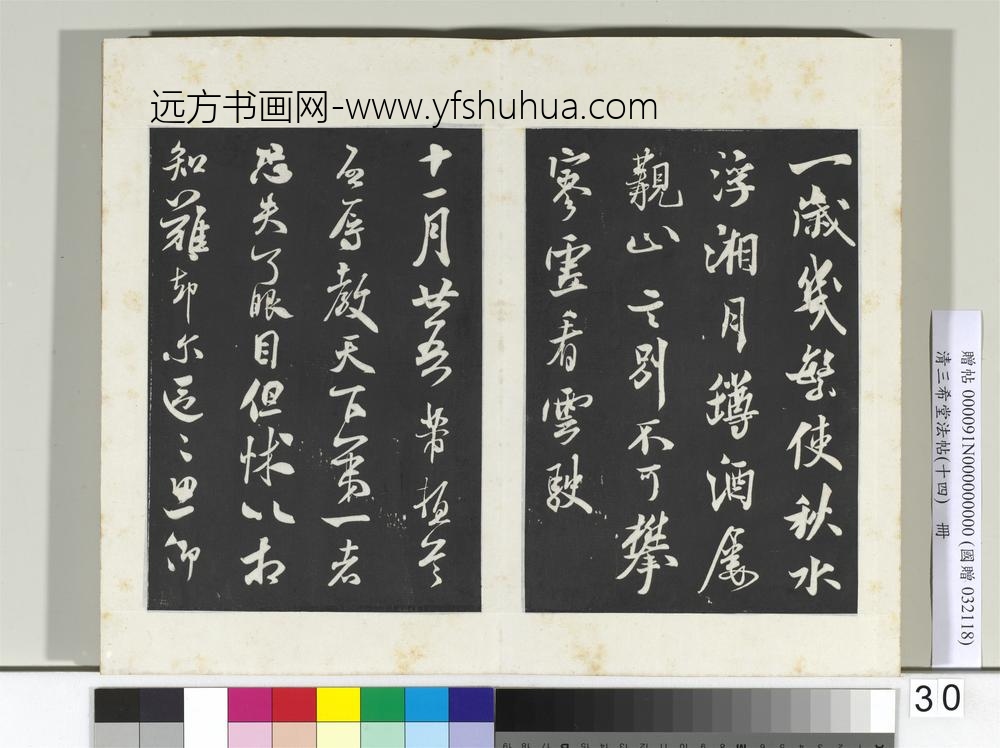 远方书画网-www.yfshuhua.com
一歲幾使秋水
浮湘月罇酒屢
山言別不可攀
寥看雲駛
十一月廿五日芾頓首
啓辱教天下第一者
恐失了眼目但怵以相
知難却尔區區思仰
贈帖 000091N000000000 (國贈 032118)
清三希堂法帖(十四) 冊
30